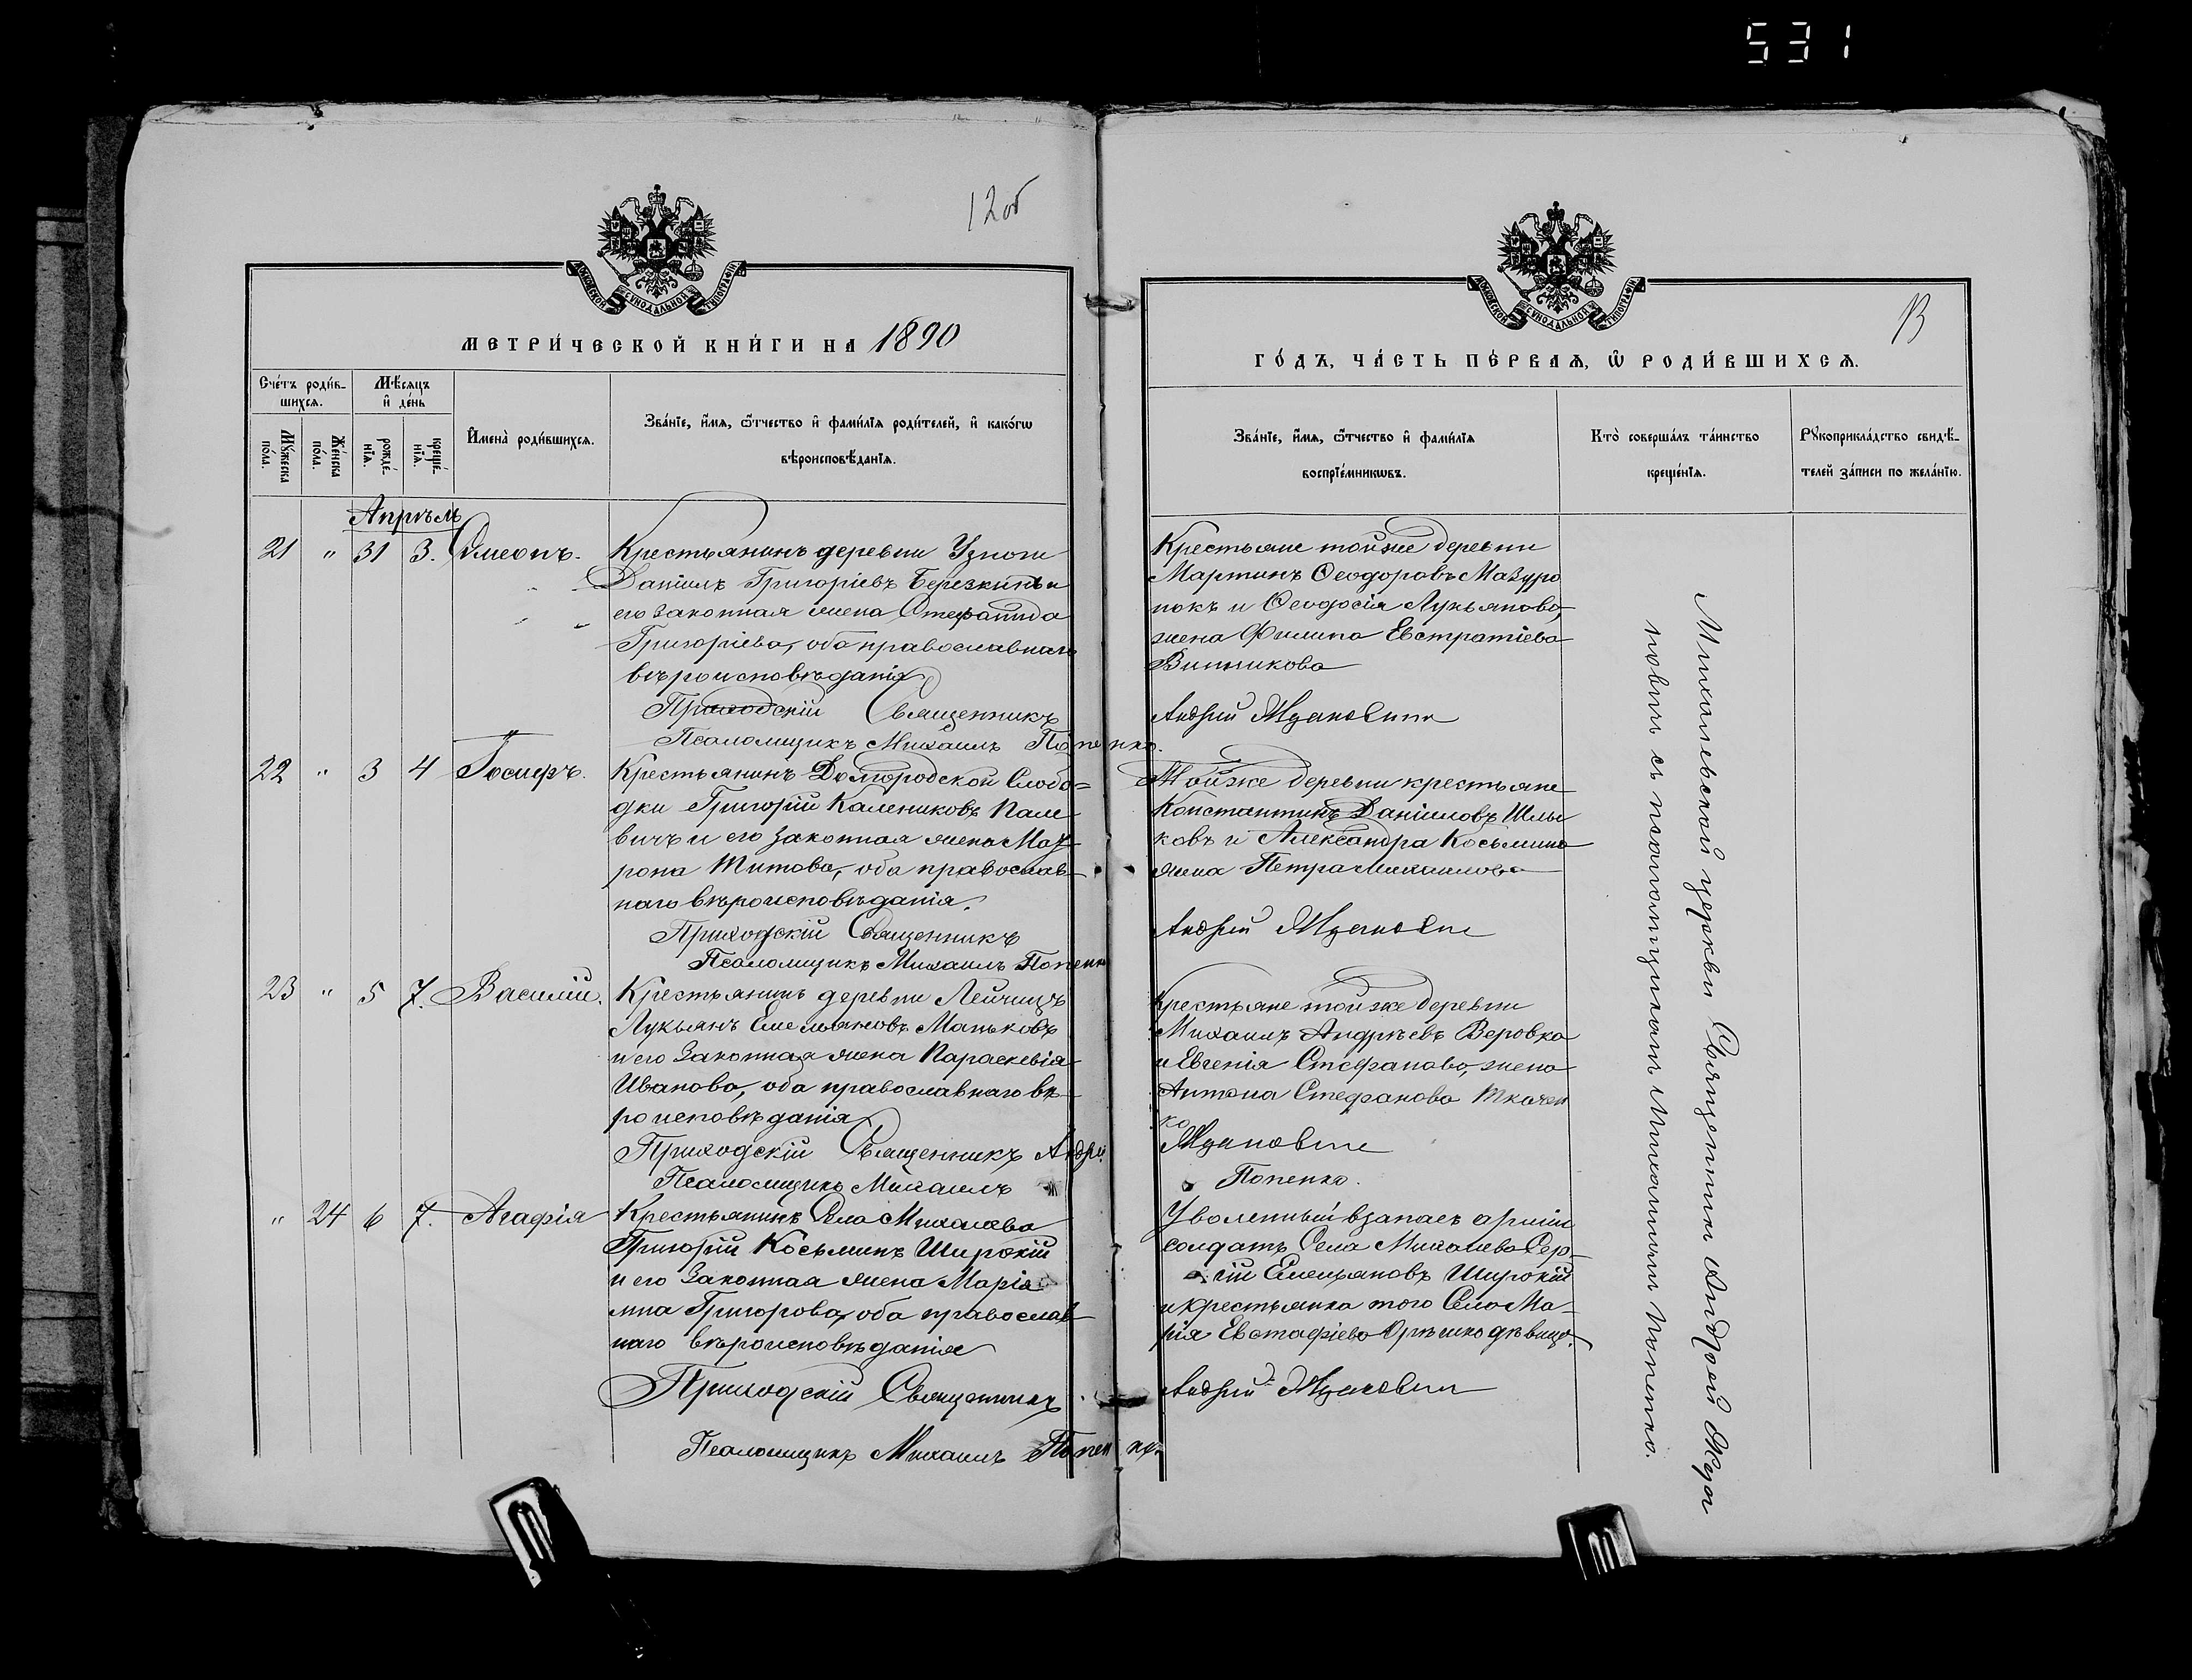 531
12об
МОСКОВСКОЙ СѴНОДАЛЬНОЙ ТИПОГРАФІИ
МЕТРИ́ЧЕСКОЙ КНИ́ГИ НА 1890
Сче́тъ роди́в-
шихсѧ.
Мѣ́сяцъ
и҆ де́нь
Мꙋ́жеска
по́ла.
Же́нска
по́ла.
рожде́-
нїѧ.
креще́-
нїѧ.
И҆мена̀ роди́вшихсѧ.
Зва́нїе, и҆́мѧ, ѻ҆́тчество и҆ фами́лїѧ роди́телей, и҆ како́гѡ
вѣроисповѣ́данїѧ.
Апрѣль
21 " 31 3. Симеонъ.
Крестьянинъ деревни Узноги
Даніилъ Григоріевъ Березкинъ и
его законная жена Стефанида
Григоріева, оба православнаго
вѣроисповѣданія
Приходскій Священникъ
Псаломщикъ Михаилъ Попенко.
22 " 3 4 Іосифъ.
Крестьянинъ Долгородской Слобо=
дки Григорій Калениковъ Пале-
вичъ и его законная жена Мат-
рона Титова, оба православ-
наго вѣроисповѣданія.
Приходскій Священникъ
Псаломщикъ Михаилъ Попенко
23 " 5 7. Василій.
Крестьянинъ деревни Лейчицъ
Лукьянъ Емельяновъ Маньковъ
и его законная жена Параскевія
Иванова, оба православнаго вѣ-
роисповѣданія
Приходскій Священникъ Андрей
Псаломщикъ Михаилъ
" 24 6 7. Агафія
Крестьянинъ Села Михалева
Григорій Косьминъ Широкій
и его законная жена Марія
Григорова, оба православ-
наго вѣроисповѣданія
Приходскій Священникъ
Псаломщикъ Михаилъ Попенко
13
МОСКОВСКОЙ СѴНОДАЛЬНОЙ ТИПОГРАФІИ
ГО́ДЪ, ЧА́СТЬ ПЕ́РВАѦ, Ѡ҆ РОДИ́ВШИХСѦ.
Зва́нїе, и҆́мѧ, ѻ҆́тчество и҆ фами́лїѧ
воспрїе́мникѡвъ.
Кто̀ соверша́лъ та́инство
креще́нїѧ.
Рꙋкоприкла́дство свидѣ́-
телей за́писи по жела́нїю.
Крестьяне той же деревни
Мартинъ Ѳеодоровъ Мазуро
нокъ и Ѳеодосія Лукьянова,
жена Филипа Евстратіева
Винникова
Андрей Ждановичъ
Той же деревни крестьяне
Константинъ Даніиловъ Шлы
ковъ и Александра Косьмина
жена Петра Михаилова
Андрей Ждановичъ
Крестьяне той же деревни
Михаилъ Андрѣевъ Веровка
и Евгенія Стефанова, жена
Антона Стефанова Ткачен
ко
Ждановичъ
Попенко.
Уволенный въ запасъ арміи
солдатъ Села Михалева Сер-
гій Емельяновъ Широкій
и крестьянка того Села Ма-
рія Евстафіева Орѣшко дѣвица.
Андрей Ждановичъ
Михалевской церкви Священникъ Андрей Жда
новичъ съ псаломщикомъ Михаиломъ Попенко.